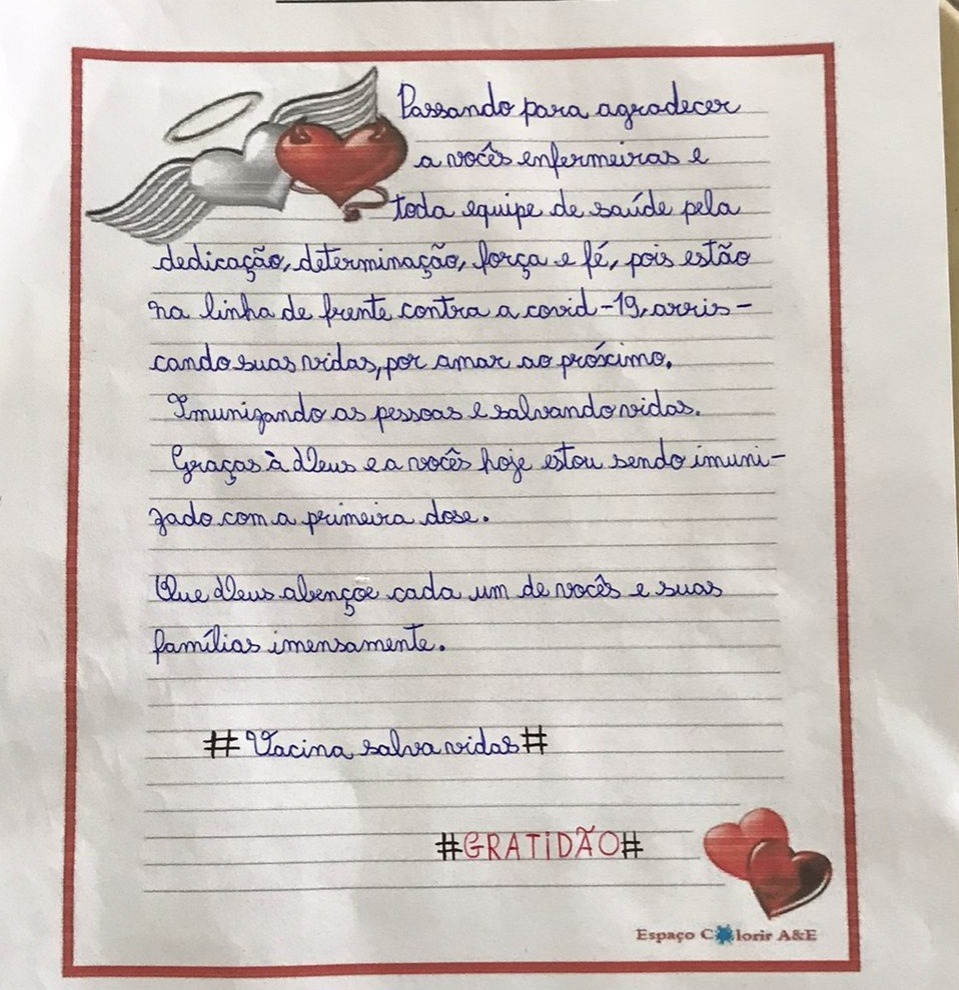 Passando para agradecer
a vocês enfermeiras e
toda equipe de saúde pela
dedicação, determinação, força e fé, pois estão
na linha de frente contra a covid-19, arris-
cando suas vidas, por amar ao próximo.
Imunizando as pessoas e salvando vidas.
Graças à Deus e a vocês hoje estou sendo imuni-
zado com a primeira dose.
Que Deus abençõe cada um de vocês e suas
famílias imensamente.
# Vacina salva vidas #
#GRATIDÃO#
Espaço Colorir A&E